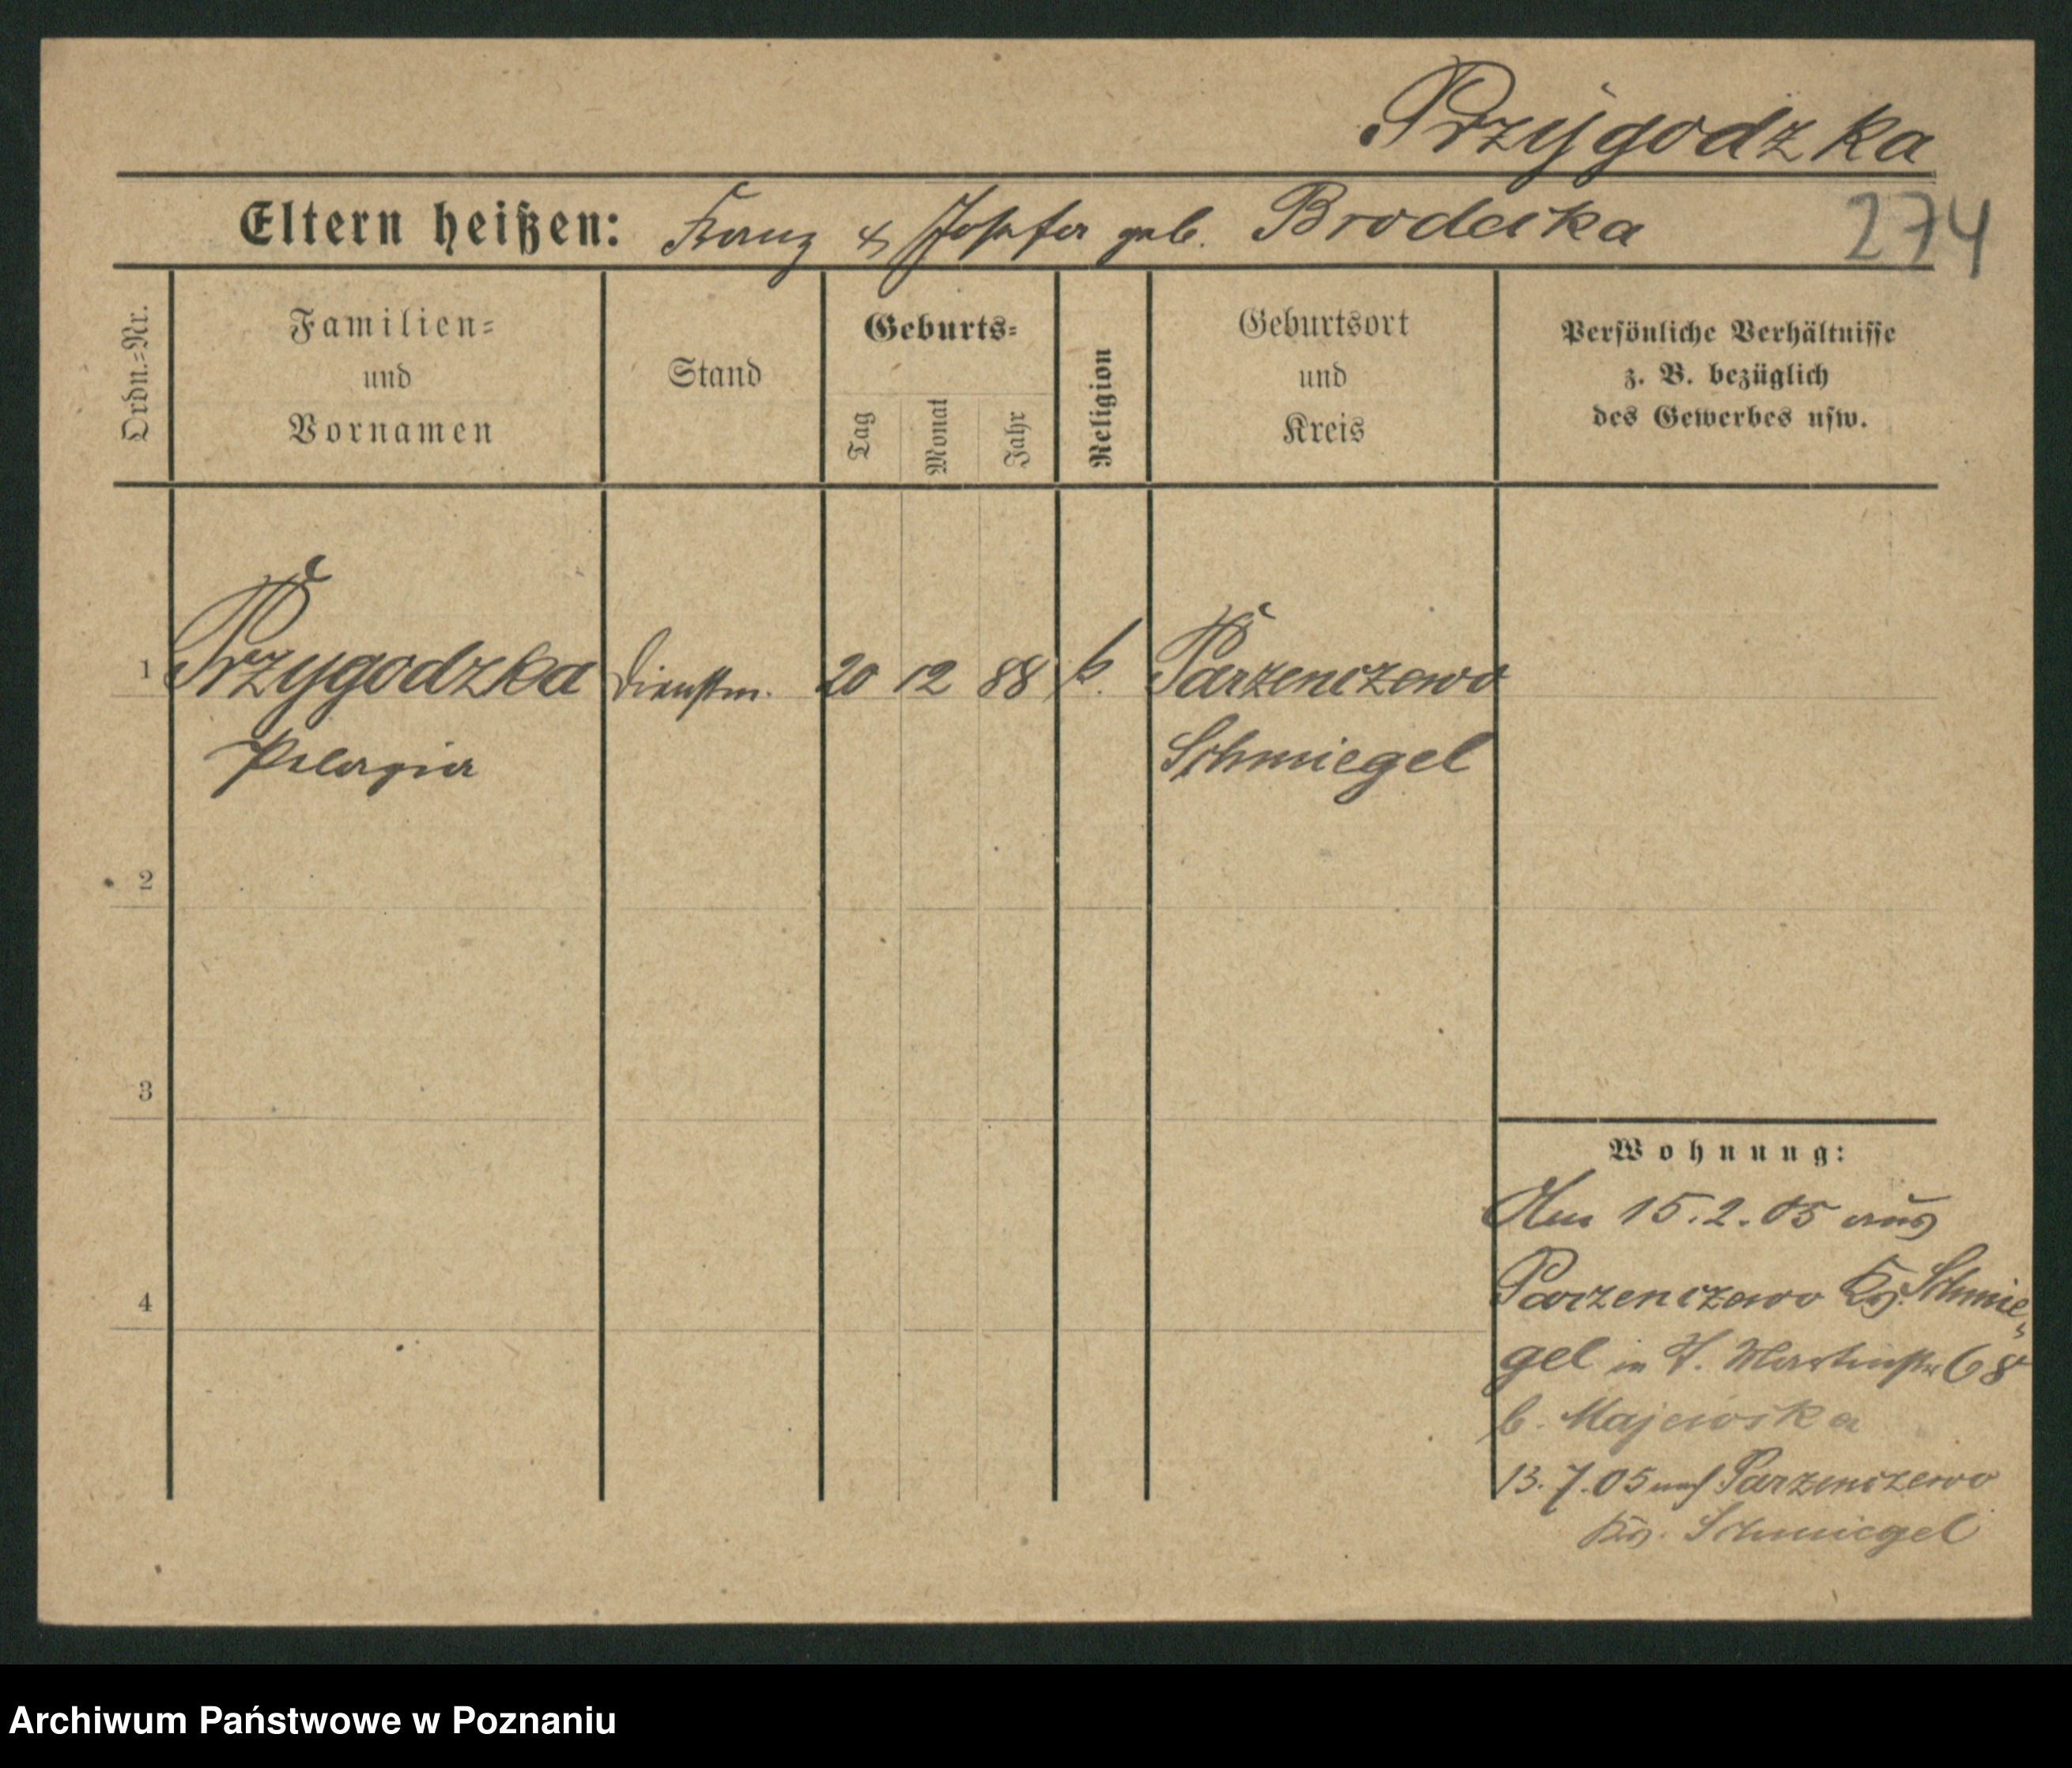 Przygodzka
Eltern heißen: Franz & Josefa geb. Brodecka
274
Ordn.=Nr.
Familien=
und
Vornamen
Stand
Geburts=
Tag
Monat
Jahr
Religion
Geburtsort
und
Kreis
Persönliche Verhältnisse
z. B. bezüglich
des Gewerbes usw.
1 Przygodzka Dienstm. 20 12 88 k. Parzenczewo
Pelagia Schmiegel
2
3
4
Wohnung:
Am 15.2.05 aus
Parzenczewo Kr. Schmie=
gel in Martinstr 68
b. Majewska
13.7.05 nach Parzenczewo
Kr. Schmiegel
Archiwum Państwowe w Poznaniu